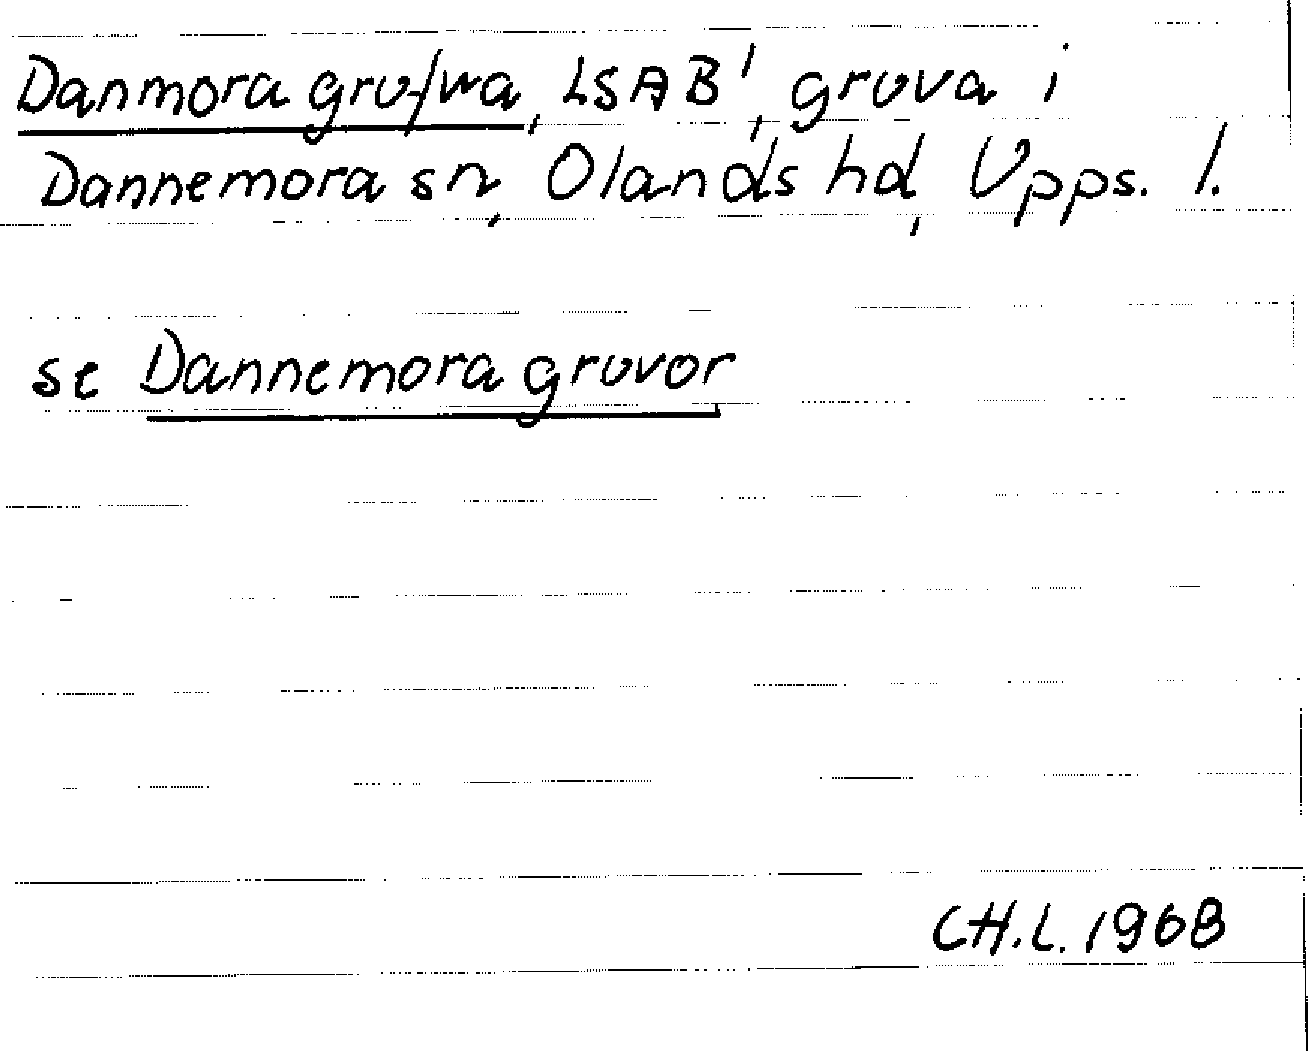 Danmora grufwa, LSAB', gruva i
Dannemora sn, Olands hd, Upps. l.
se Dannemora gruvor
CH.L. 1968